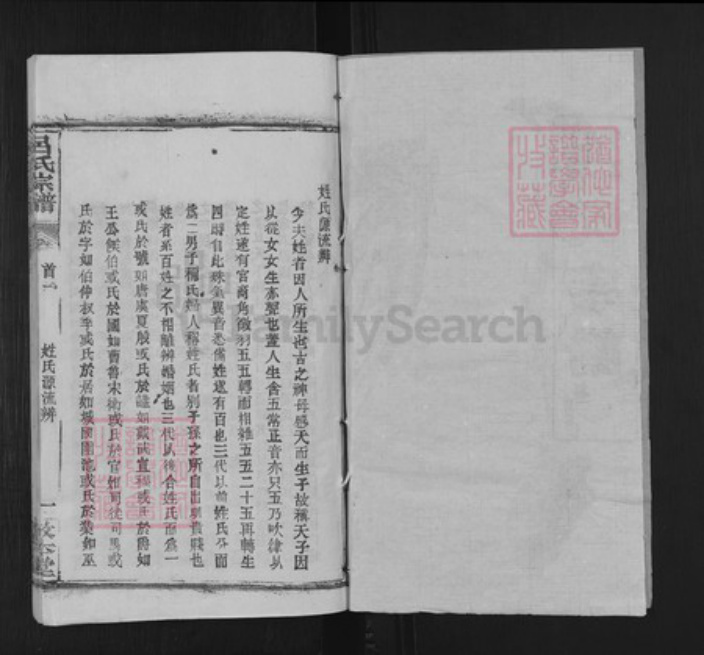 姓氏源流辨
今夫姓者因人所生也古之神母感天而生子故稱天子因
以從女女生亦聲也蓋人生含五常正音亦只五乃吹律以
定姓還有宮商角徵羽五五轉而相雜五五二十五再轉生
四時自此殊氣異音悉備姓還有百也三代以前姓氏分而
為二男子稱氏婦人稱姓氏者別子孫之所自出辨貴賤也
姓者系百姓之不相離辨婚姻也三代以後合姓氏而為一
或氏於號如唐虞夏殷或氏於諡如戴武宣穆或氏於爵如
王公侯伯或氏於國如曹魯宋衛或氏於官如司徒司馬或
氏於字如伯仲叔季或氏於居如城郭園池或氏於業如巫
呂氏宗譜
卷
首一
姓氏源流辨
一
FamilySearch